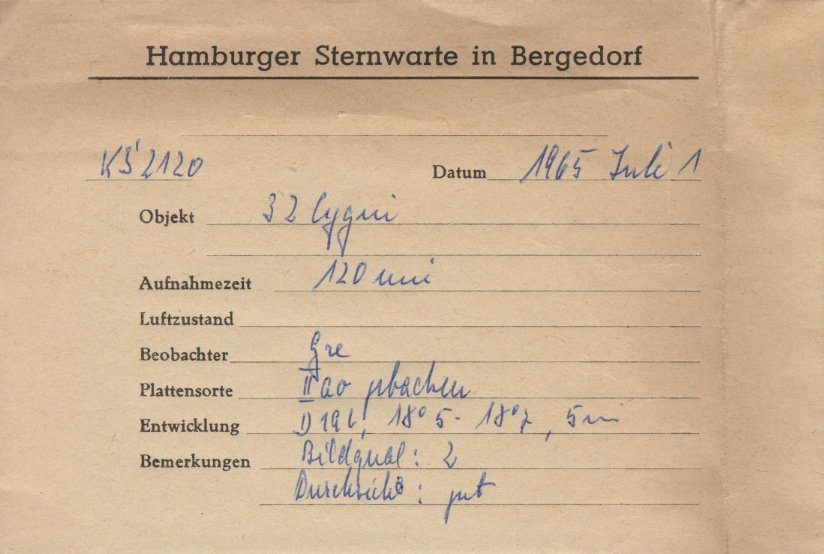 Hamburger Sternwarte in Bergedorf
KS 2120 Datum 1965 Juli 1
Objekt 32 Cygni
Aufnahmezeit 120 min
Luftzustand
Beobachter Gre
Plattensorte IIaO gebacken
Entwicklung D 196, 18°5 - 18°7, 5 min
Bemerkungen Bildqual: 2
Durchsicht: gut